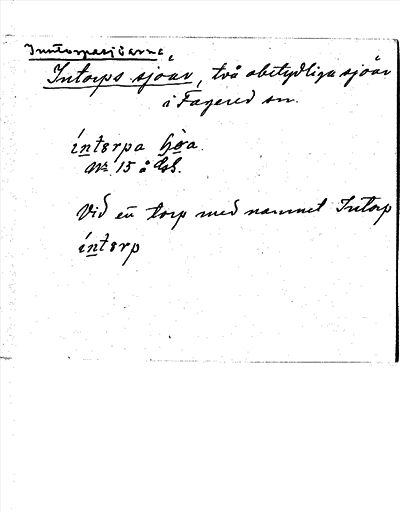 Inntorpasjöarna
Intorps sjöar, två obetydliga sjöar
i Fagered sn.
íntorpa
Nr 15 å Gsk.
Vid en torp med namnet Intorp
íntorp